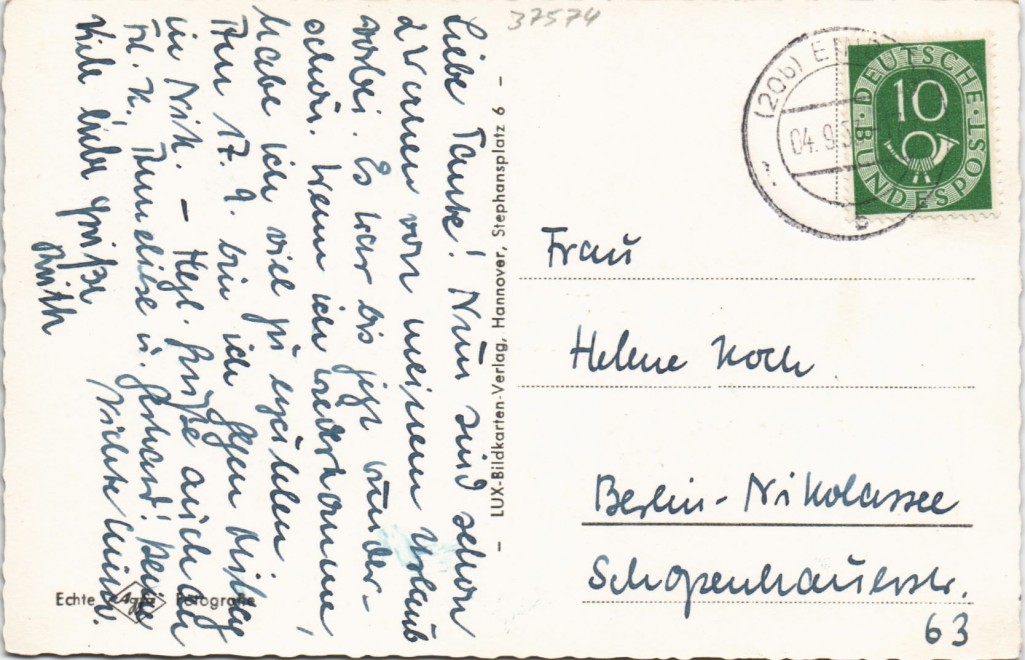 37574
(20b) EIN
04.9.5
b
DEUTSCHE
BUNDESPOST
10
Liebe Tante! Nun sind schon
2 Wochen von meinem Urlaub
vorbei. Es war bis jetzt wunder-
schön. Wenn ich wiederkomme,
habe ich viel zu erzählen.
Am 17. 9. bin ich gegen Mittag
in Nik. – Hzl. Grüße auch an
Frl. K., Anneliese u. Gerhard! Deine
Viele liebe Grüße
Nichte Luise.
– LUX-Bildkarten-Verlag, Hannover, Stephansplatz 6 –
Echte Agfa Fotografie
Frau
Helene Koch
Berlin-Nikolassee
Schopenhauerstr.
63